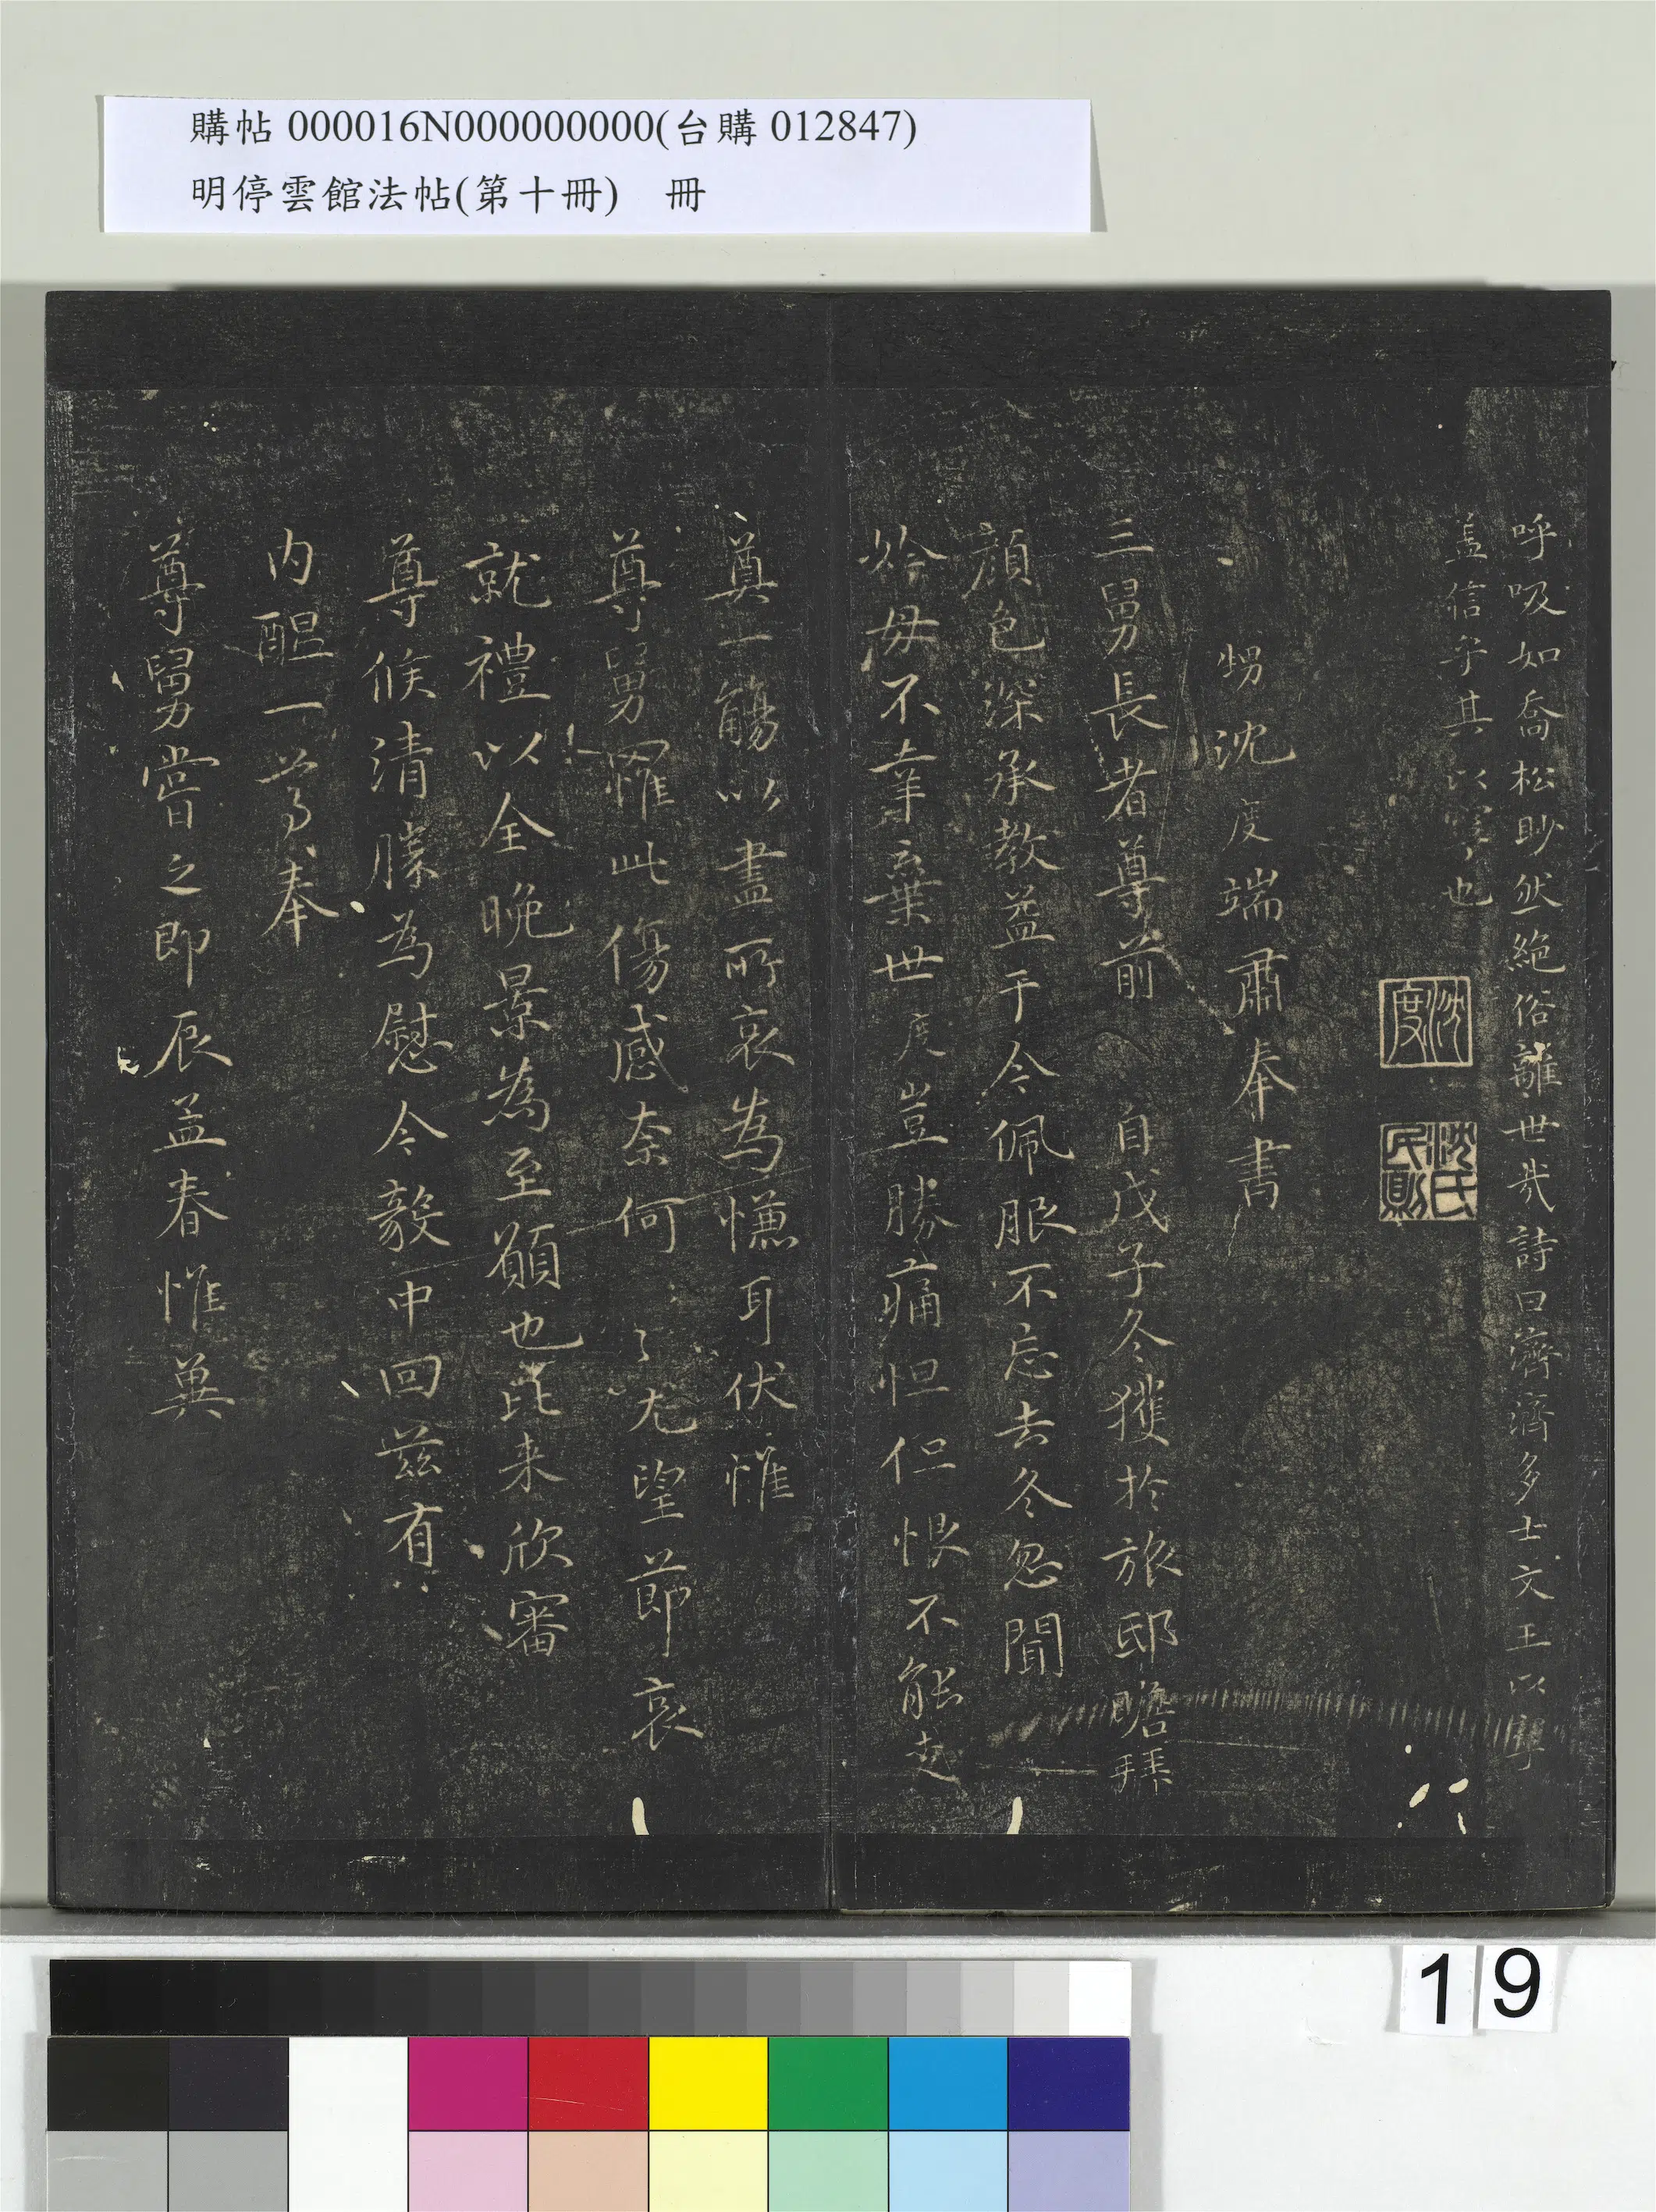 購帖 000016N000000000(台購 012847)
明停雲館法帖(第十冊) 冊
呼吸如喬松眇然絕俗離世哉詩曰濟濟多士文王以寧
蓋信乎其以寧也
沈度
沈氏民則
甥沈度端肅奉書
三舅長者尊前 自戊子冬獲於旅邸瞻拜
顏色深承教益于今佩服不忘去冬忽聞
妗母不幸棄世度豈勝痛怛但恨不能走
奠一觴以盡所哀為慊耳伏惟
尊舅罹此傷感奈何〻〻尤望節哀
就禮以全晚景為至願也比来欣審
尊候清勝為慰今毅中回茲有
內醞一尊奉
尊舅嘗之即辰孟春惟冀
19